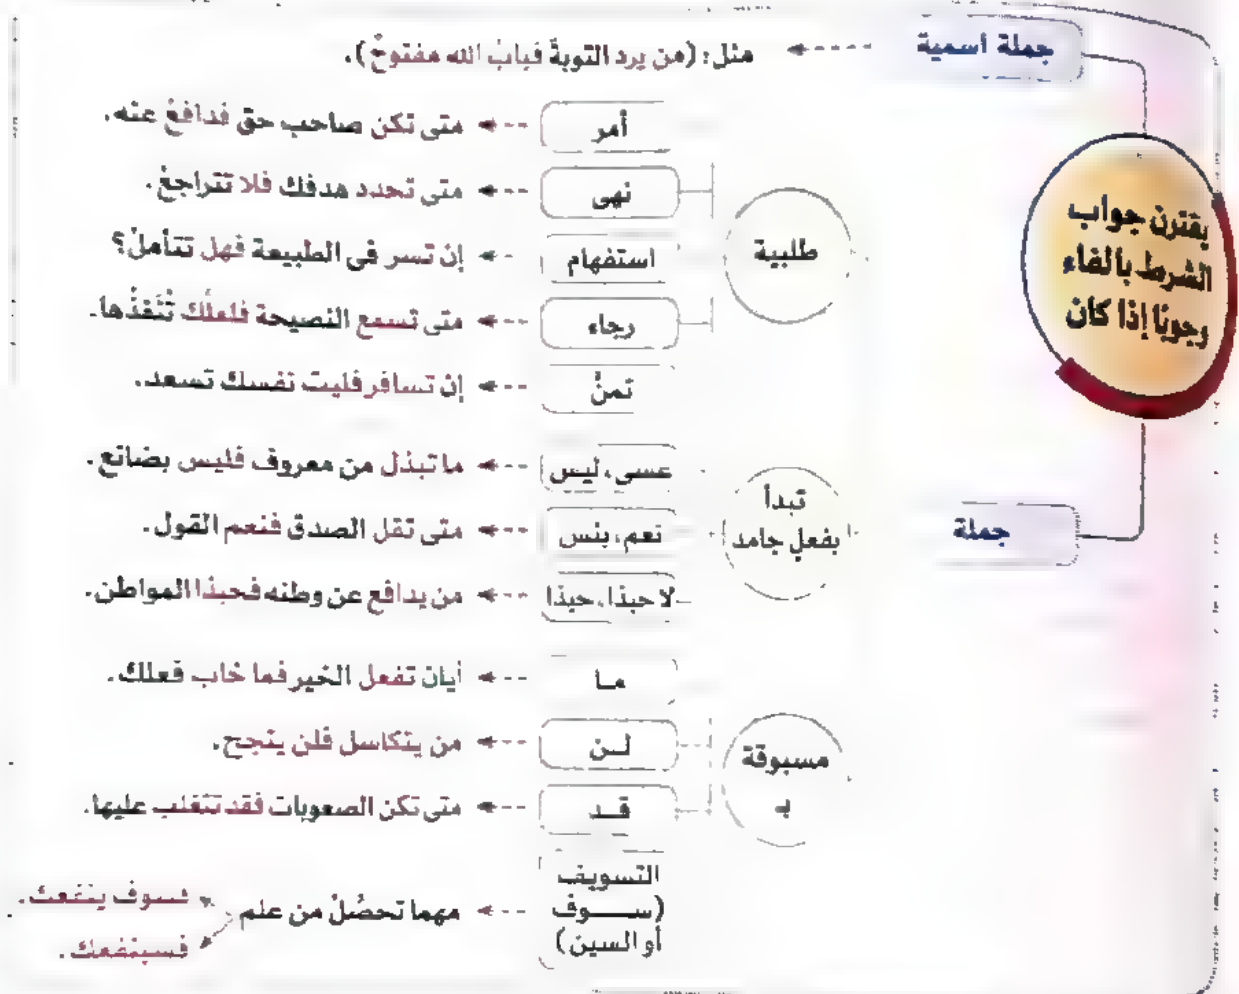 يقترن جواب
الشرط بالفاء
وجوبًا إذا كان
جملة اسمية
مثل: (من يرد التوبةَ فبابُ الله مفتوحٌ).
جملة
طلبية
أمر
متى تكن صاحب حق فدافعْ عنه.
نهى
متى تحدد هدفك فلا تتراجعْ.
استفهام
إن تسر فى الطبيعة فهل تتأملُ؟
رجاء
متى تسمع النصيحة فلعلَّك تُنَفذُها.
تمنٌ
إن تسافر فليت نفسك تسعد.
تبدأ
بفعلٍ جامد
عسى، ليس
ما تبذل من معروف فليس بضائع.
نعم، بئس
متى تقل الصدق فنعم القول.
لا حبذا، حبذا
من يدافع عن وطنه فحبذا المواطن.
مسبوقة
بـ
مـا
أيان تفعل الخير فما خاب فعلك.
لـن
من يتكاسل فلن ينجح.
قـد
متى تكن الصعوبات فقد تتغلب عليها.
التسويف
(ســوف
أو السين)
مهما تحصِّلْ من علم
فسوف ينفعك.
فسينفعك.